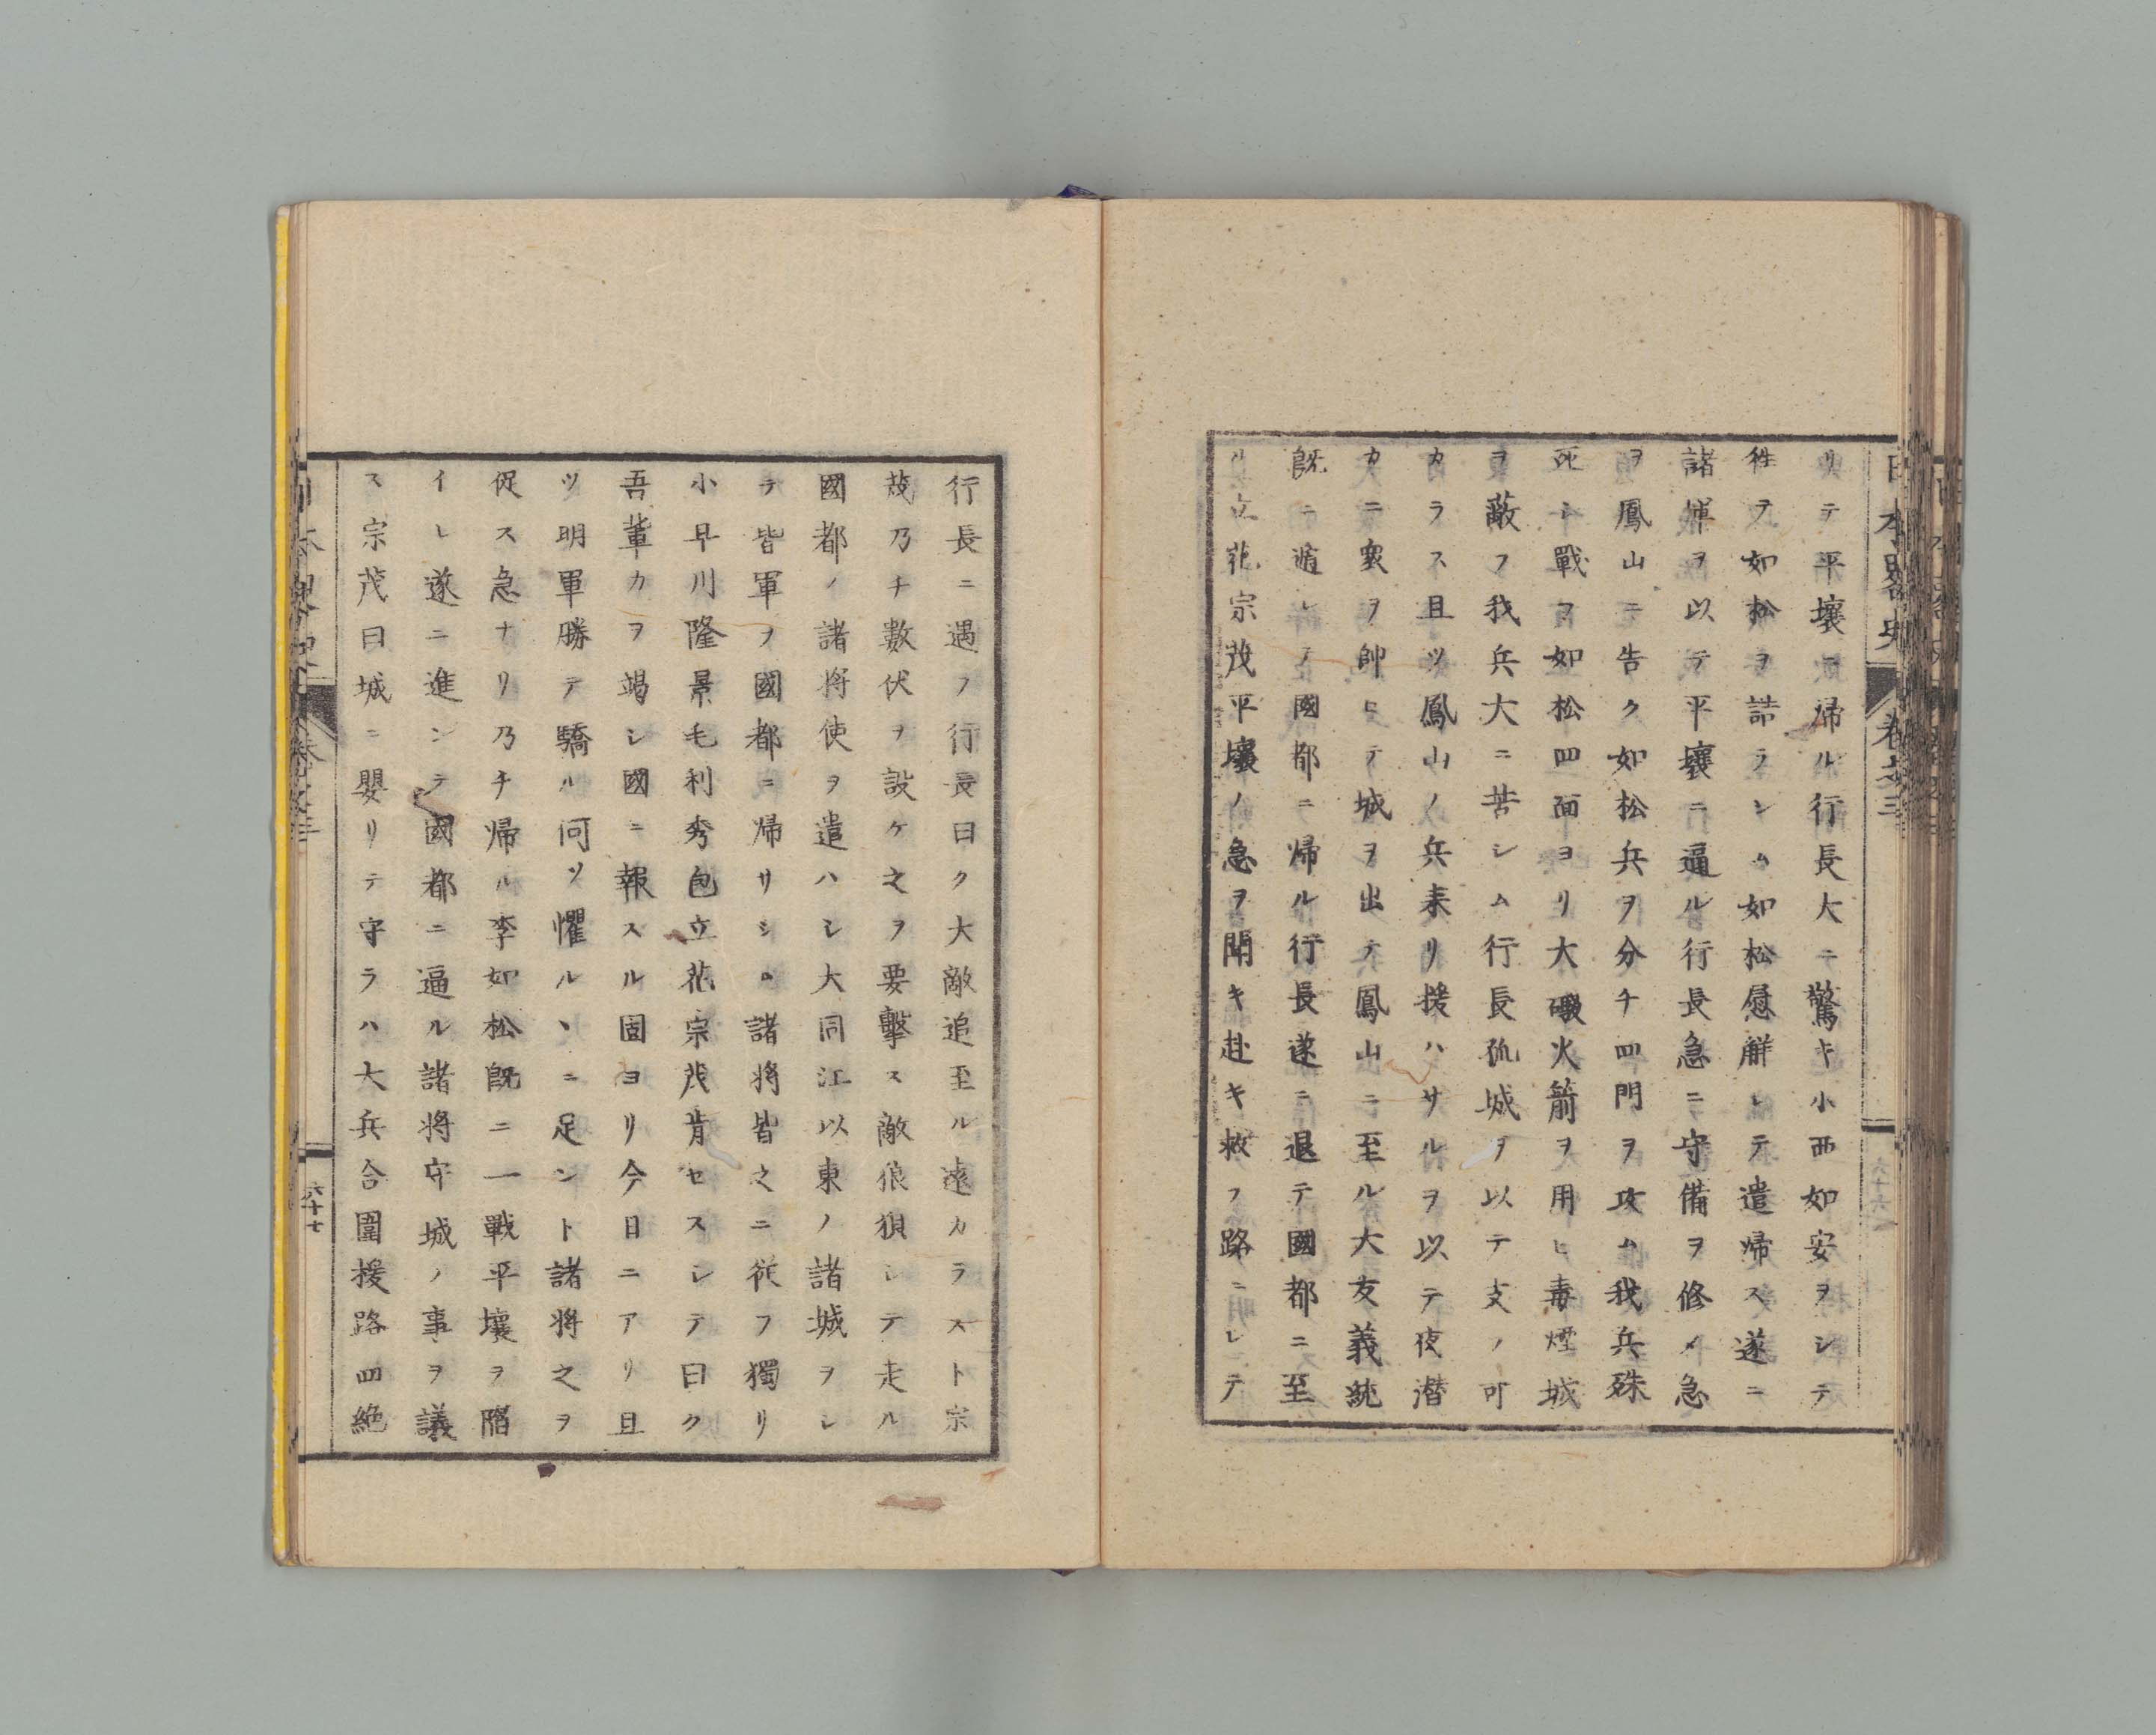 日本畧史 卷之三
リテ平壤ニ帰ル行長大ニ驚キ小西如安ヲシテ
徃ヲ如松ヲ詰ラシム如松慰解シテ遣帰ス遂ニ
諸軍ヲ以テ平壤ニ逼ル行長急ニ守備ヲ修メ急
ヲ鳳山ニ告ク如松兵ヲ分チ四門ヲ攻ム我兵殊
死シ戰フ如松四面ヨリ大礟火箭ヲ用ヒ毒煙城
ヲ蔽フ我兵大ニ苦シム行長孤城ヲ以テ支ノ可
カラス且ツ鳳山ノ兵来リ援ハサルヲ以テ夜潜
カニ衆ヲ帥ヒテ城ヲ出テ鳳山ニ至ル大友義統
既ニ遁レテ國都ニ帰ル行長遂ニ退テ國都ニ至
ル立花宗茂平壤ノ急ヲ聞キ赴キ救フ路ニシテ
行長ニ遇フ行長曰ク大敵追至ル遠カラスト宗
茂乃チ數伏ヲ設ケ之ヲ要擊ス敵狼狽シテ走ル
國都ノ諸将使ヲ遣ハシ大同江以東ノ諸城ヲシ
テ皆軍ヲ國都ニ帰サシム諸将皆之ニ従フ獨リ
小早川隆景毛利秀包立花宗茂肯セスシテ曰ク
吾輩力ヲ竭シ國ニ報スル固ヨリ今日ニアリ且
ツ明軍勝テ驕ル何ソ懼ルヽニ足ント諸将之ヲ
促ス急ナリ乃チ帰ル李如松既ニ一戰平壤ヲ陷
イレ遂ニ進ンテ國都ニ逼ル諸将守城ノ事ヲ議
ス宗茂曰城ニ嬰リテ守ラハ大兵合圍援路四絶
六十七